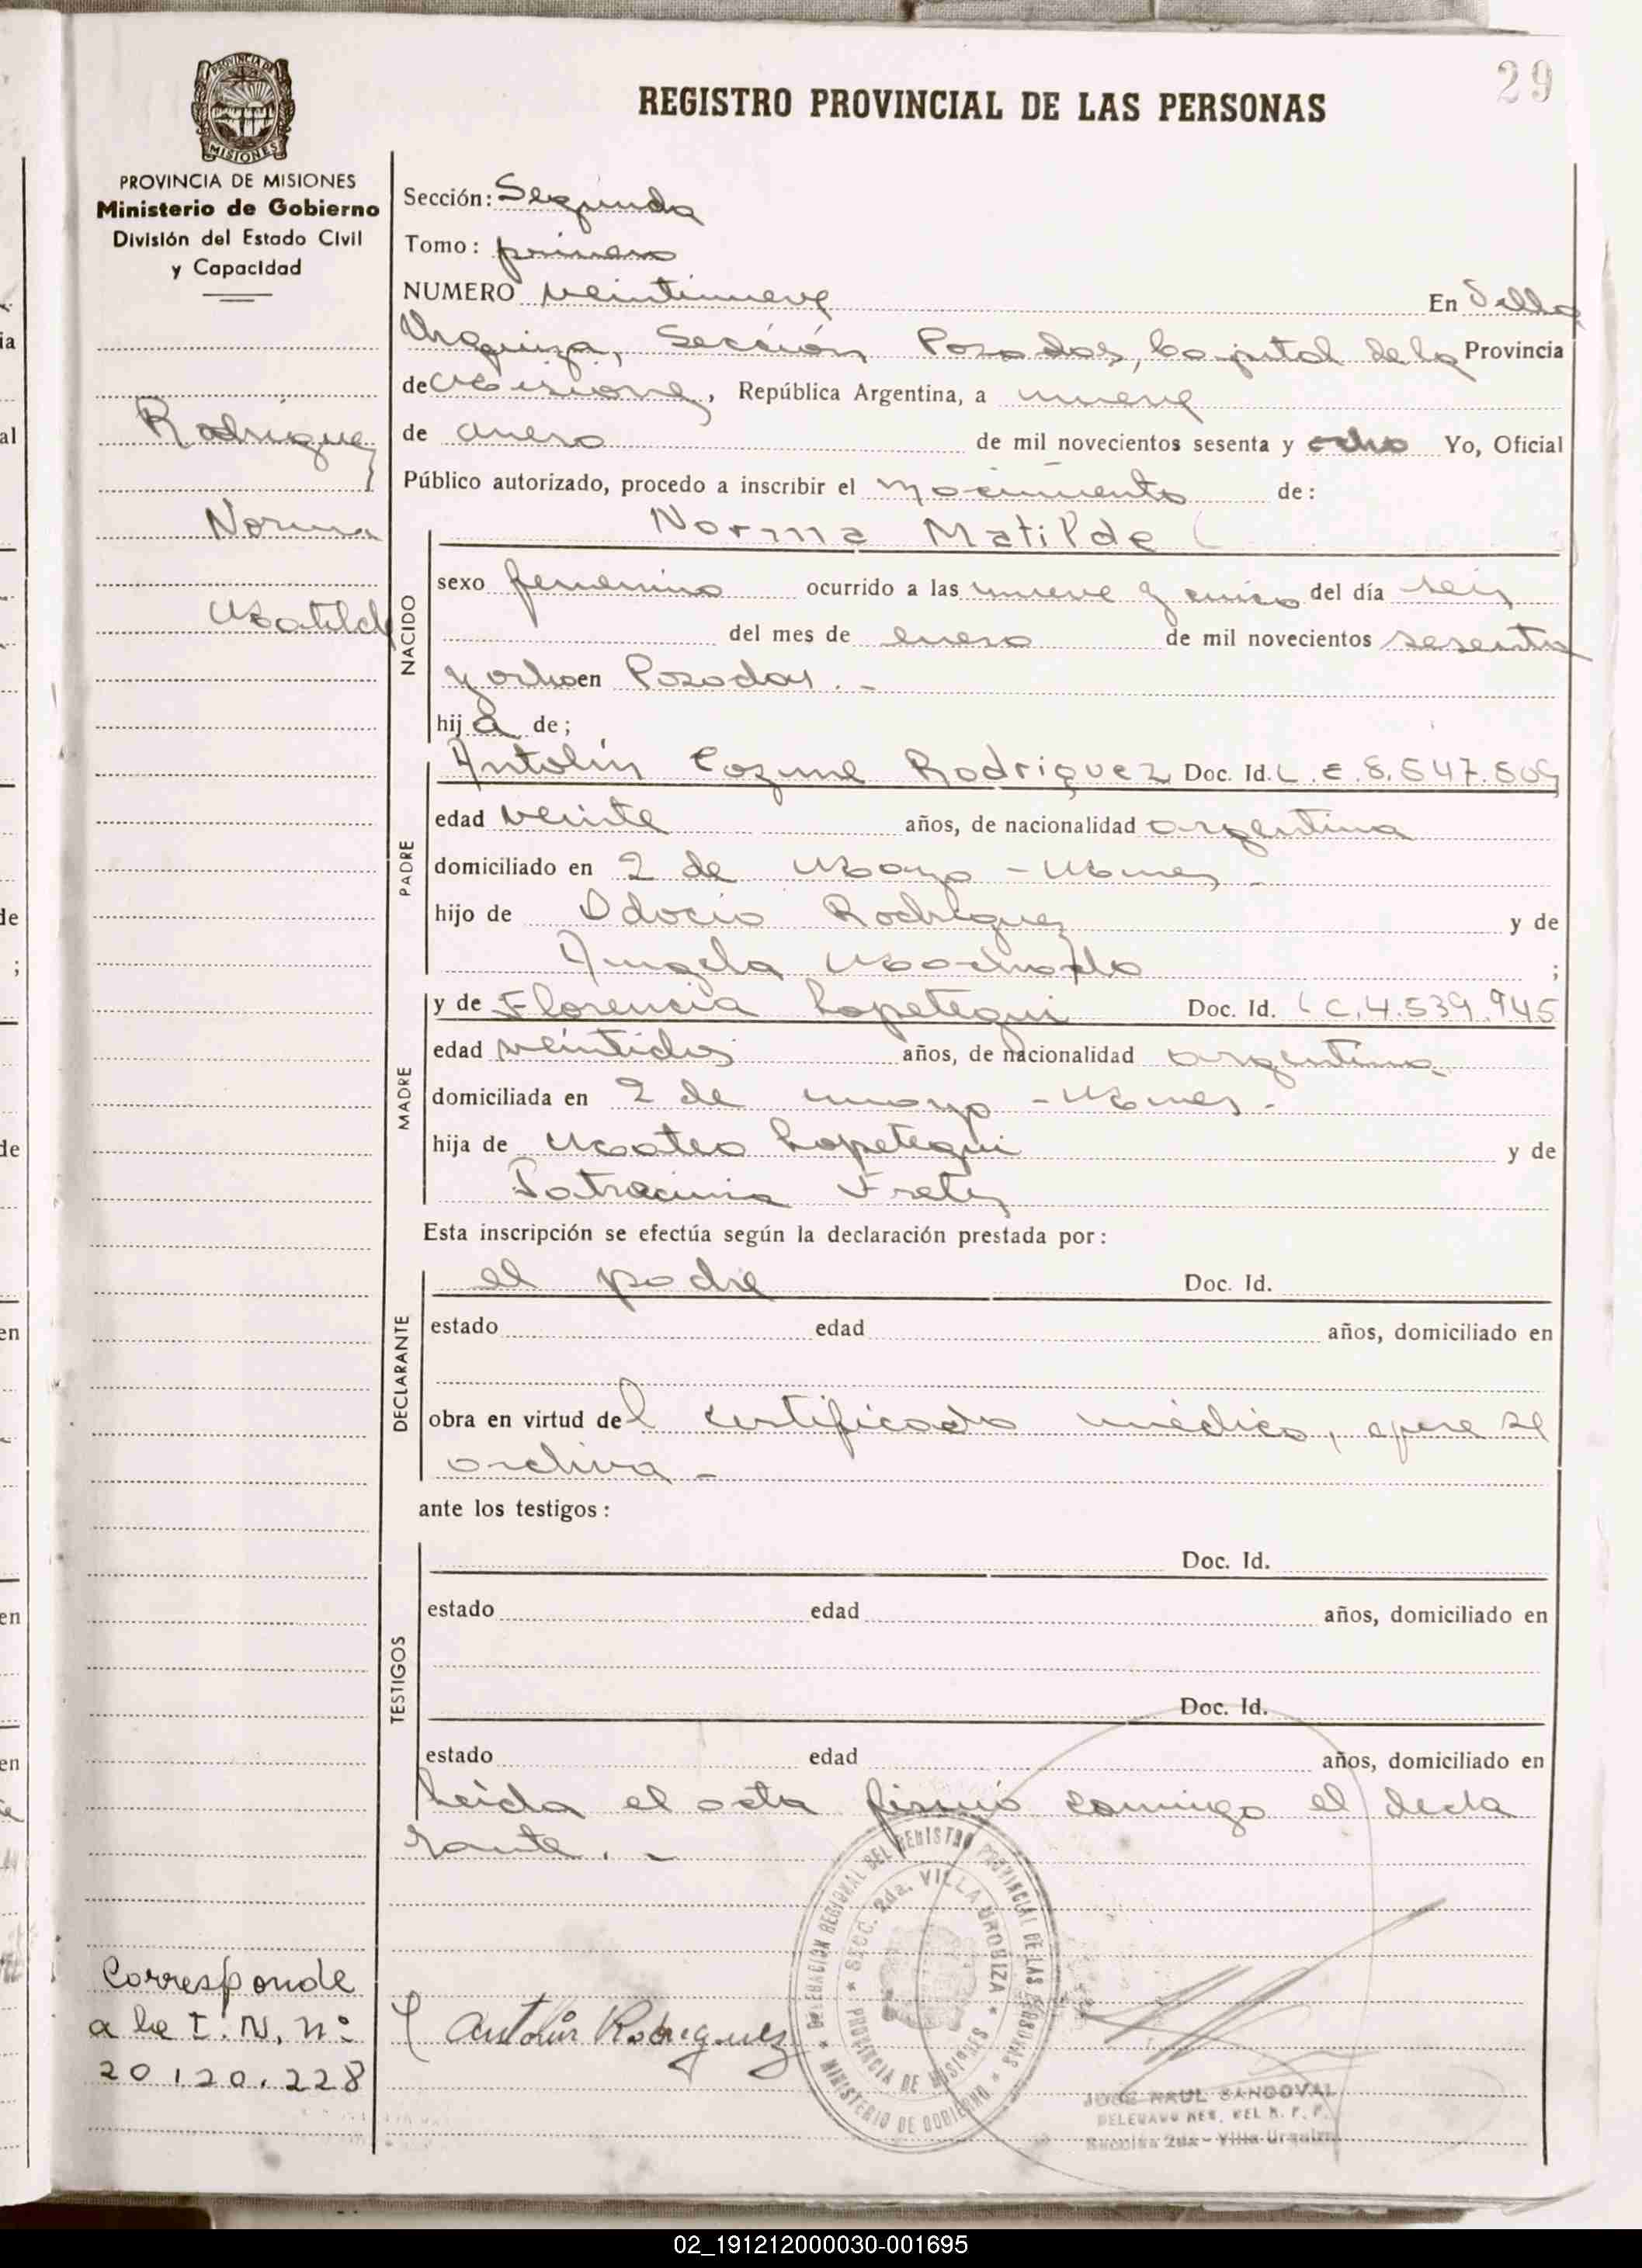 29
PROVINCIA DE
MISIONES
REGISTRO PROVINCIAL DE LAS PERSONAS
PROVINCIA DE MISIONES
Ministerio de Gobierno
División del Estado Civil
y Capacidad
Rodriguez
Norma
Matilde
Sección: Segunda
Tomo: primero
NUMERO veintinueve En Villa
Urquiza, Sección Posadas, Capital de la Provincia
de Misiones, República Argentina, a nueve
de enero de mil novecientos sesenta y ocho Yo, Oficial
Público autorizado, procedo a inscribir el nacimiento de:
NACIDO
Norma Matilde
sexo femenino ocurrido a las nueve y cinco del día seis
del mes de enero de mil novecientos sesenta
y ocho en Posadas. -
hija de;
PADRE
Antolín Cozme Rodriguez Doc. Id. L.E.8.547.809
edad veinte años, de nacionalidad argentina
domiciliado en 2 de Mayo - Mnes -
hijo de Odocio Rodriguez y de
Angela Machado ;
MADRE
y de Florencia Lopetegui Doc. Id. LC.4.539.945
edad veintidos años, de nacionalidad argentina
domiciliada en 2 de mayo - Mnes. -
hija de Mateo Lopetegui y de
Patrocinia Fretes
Esta inscripción se efectúa según la declaración prestada por:
DECLARANTE
el padre Doc. Id.
estado edad años, domiciliado en
obra en virtud del certificado médico, que se
archiva -
ante los testigos:
TESTIGOS
Doc. Id.
estado edad años, domiciliado en
Doc. Id.
estado edad años, domiciliado en
Leída el acta firmó conmigo el decla
rante. -
DELEGACION REGIONAL DEL REGISTRO PROVINCIAL DE LAS PERSONAS
SECC. 2da. VILLA URQUIZA
PROVINCIA DE MISIONES
MINISTERIO DE GOBIERNO
Corresponde
a la I. N. n°
20.120.228
Antolin Rodriguez
JOSE RAUL SANDOVAL
DELEGADO REG. DEL R. P. P.
Sección 2da - Villa Urquiza
02_191212000030-001695